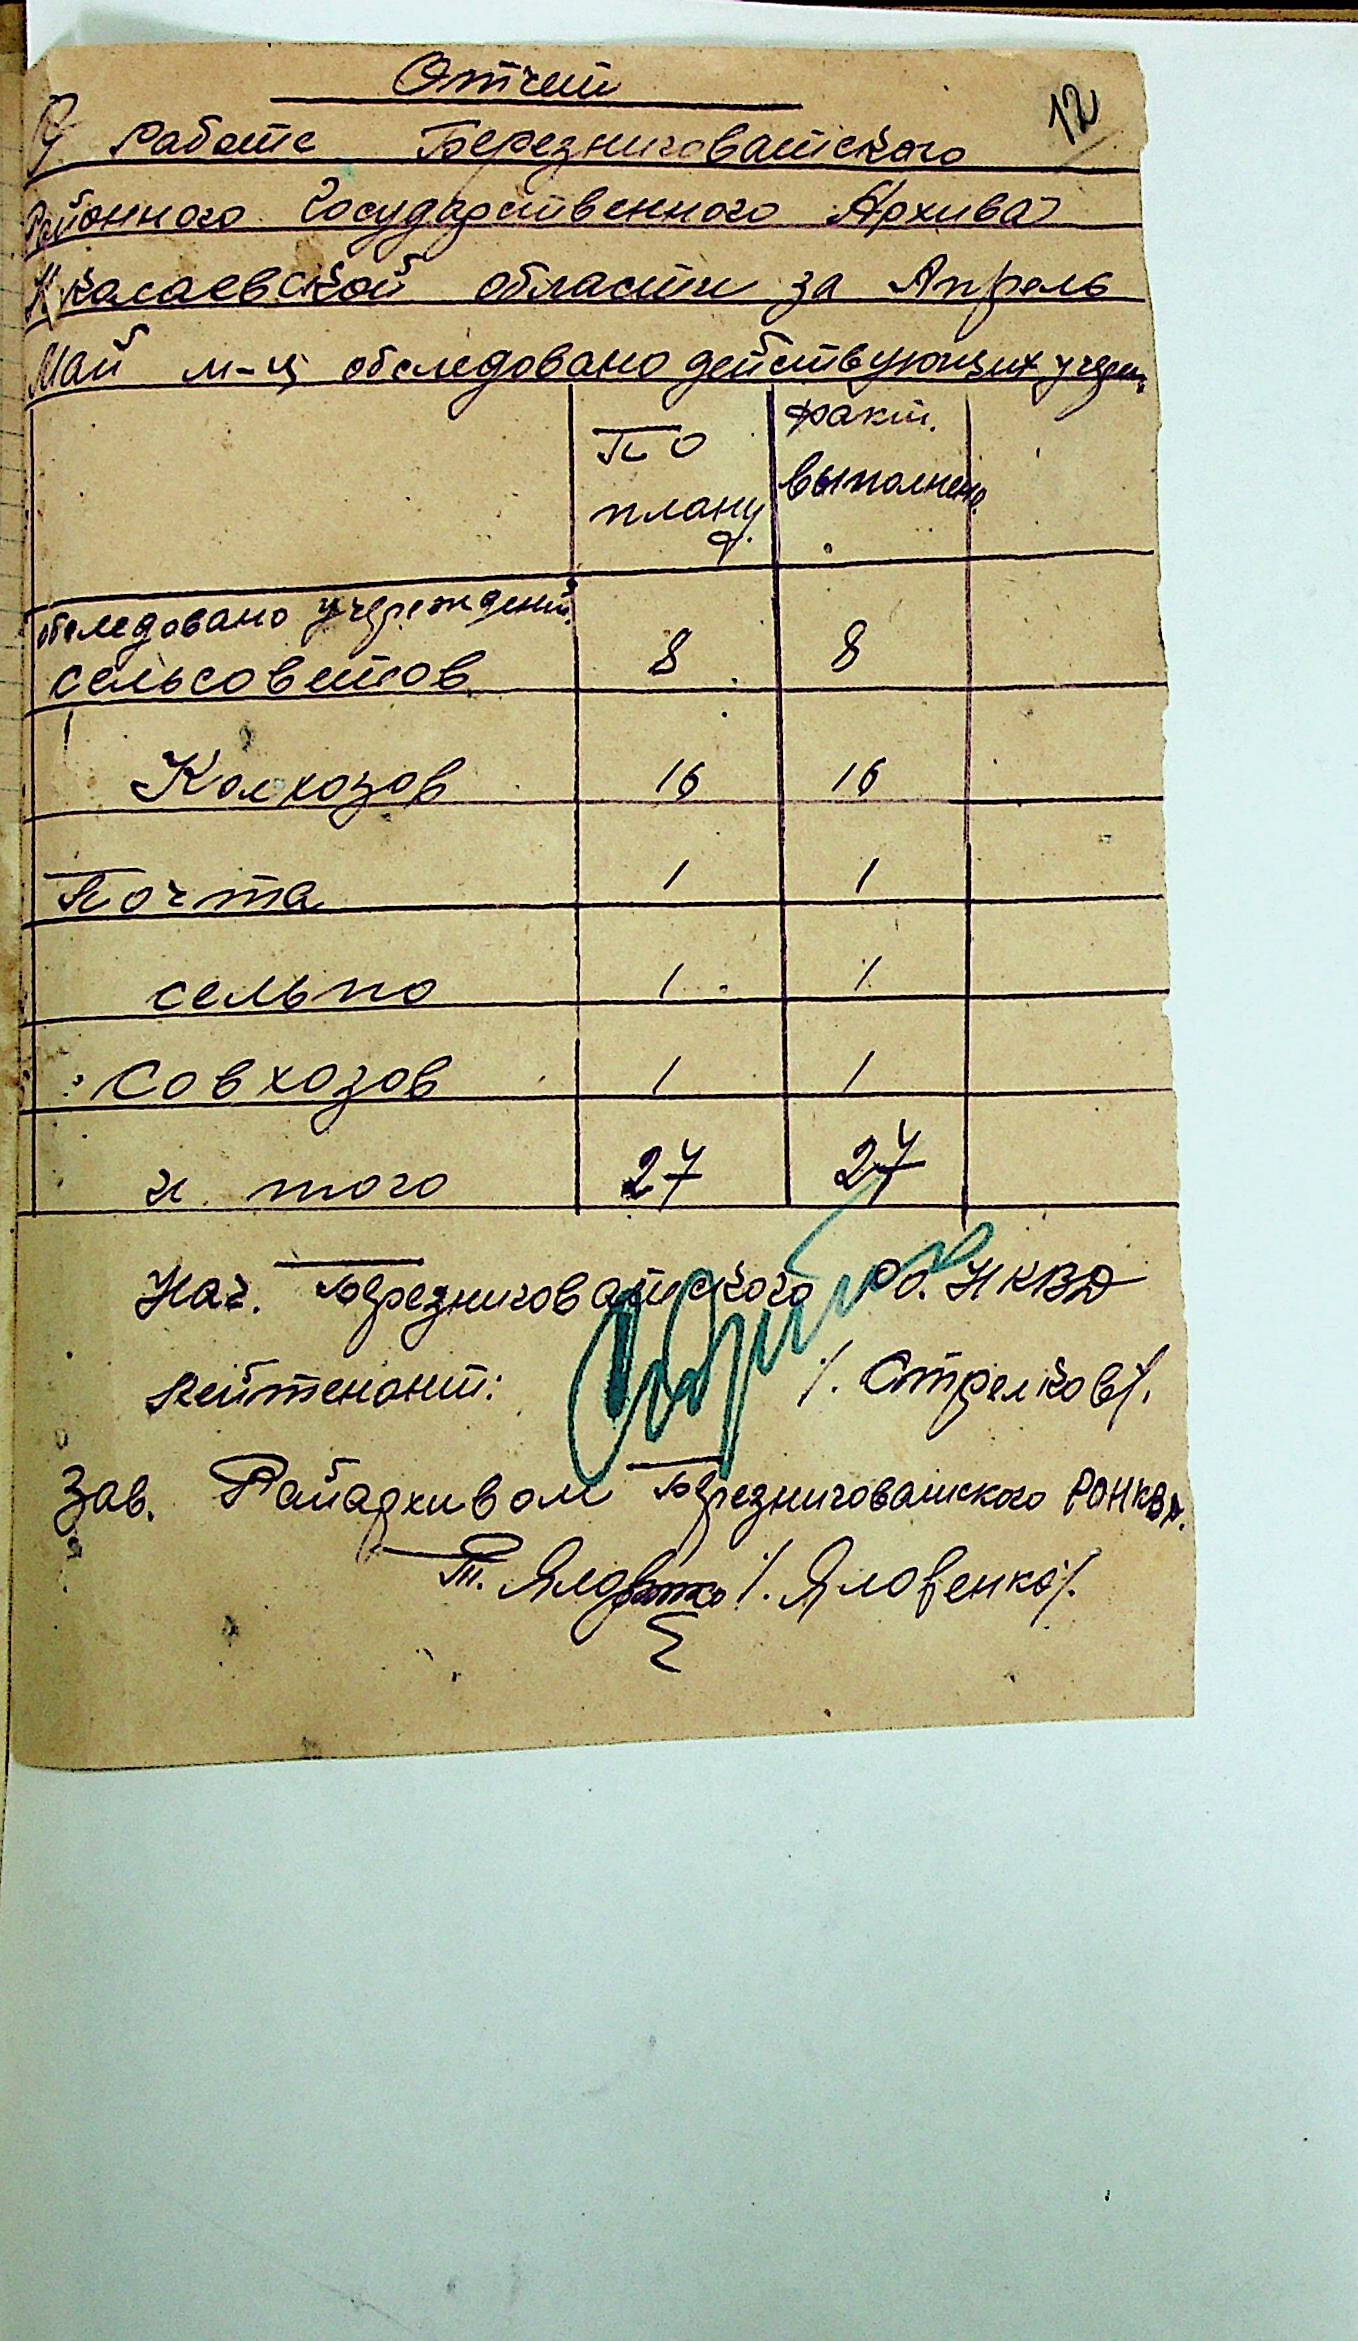 Отчет
12
О работе Березниговатского
Районного Государственного Архива
Николаевской области за Апрель
Май м-ц обследовано действующих учреж.
По плану
факт. выполнено.
обследовано учреждений
сельсоветов 8 8
Колхозов 16 16
Почта 1 1
сельпо 1 1
Совхозов 1 1
и того 27 27
Нач. Березниговатского Ро. НКВД
Лейтенант: /. Стрелков/.
Зав. Райархивом Березниговатского РОНКВД.
Т. Яловенко /. Яловенко/.